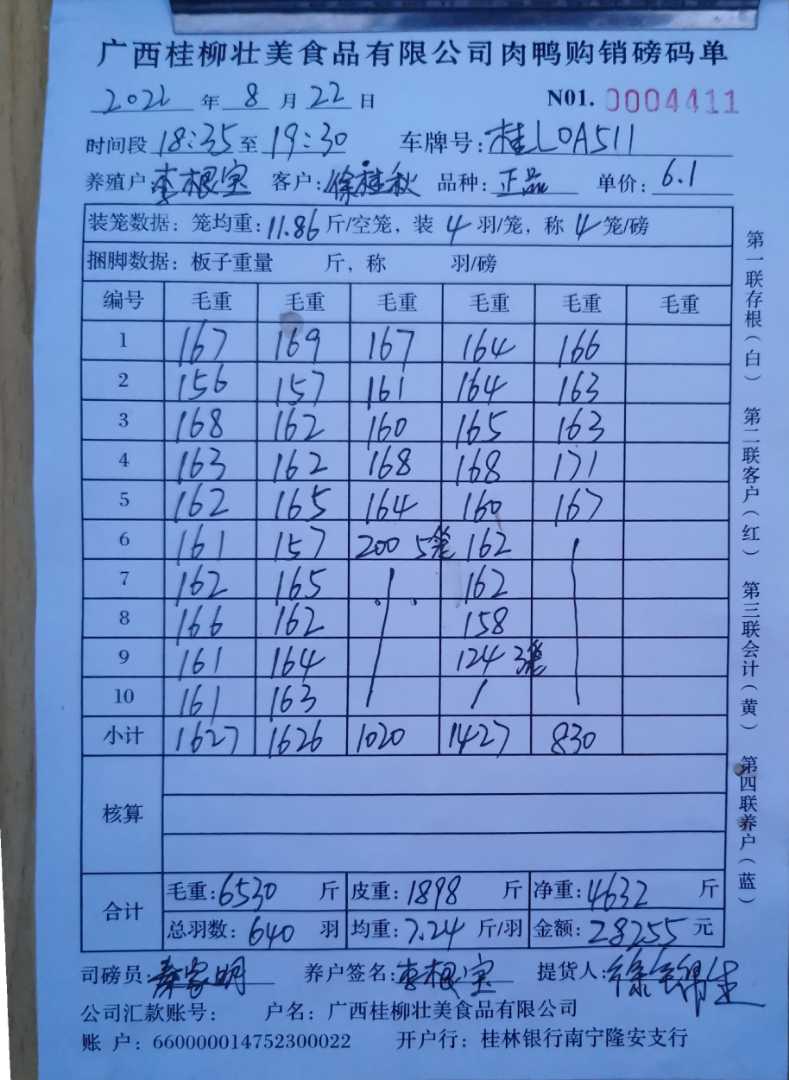 广西桂柳壮美食品有限公司肉鸭购销磅码单
2022 年 8 月 22 日 N01. 0004411
时间段 18:35 至 19:30 车牌号: 桂L0A511
养殖户 李根宝 客户: 徐桂秋 品种: 正品 单价: 6.1
装笼数据: 笼均重: 11.86 斤/空笼, 装 4 羽/笼, 称 4 笼/磅
捆脚数据: 板子重量 斤, 称 羽/磅
编号 毛重 毛重 毛重 毛重 毛重 毛重
1 167 169 167 164 166
2 156 157 161 164 163
3 168 162 160 165 163
4 163 162 168 168 171
5 162 165 164 160 167
6 161 157 200 5笼 162
7 162 165 162
8 166 162 158
9 161 164 124 3笼
10 161 163
小计 1627 1626 1020 1427 830
核算
合计
毛重: 6530 斤 皮重: 1898 斤 净重: 4632 斤
总羽数: 640 羽 均重: 7.24 斤/羽 金额: 28255 元
司磅员: 秦家明 养户签名: 李根宝 提货人: 徐锦生
公司汇款账号: 户名: 广西桂柳壮美食品有限公司
账 户: 660000014752300022 开户行: 桂林银行南宁隆安支行
第一联存根(白) 第二联客户(红) 第三联会计(黄) 第四联养户(蓝)